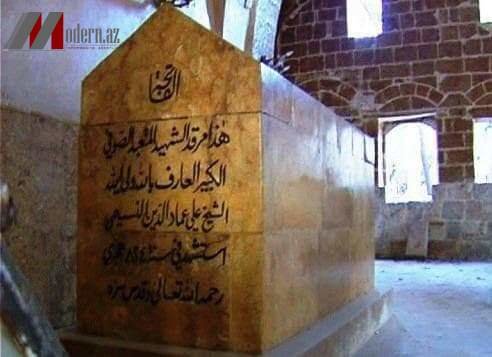 Modern.az
الفاتحة
هذا مرقد الشهيد المتعبد الصوفي
الكبير العارف بالله ولي الله
الشيخ علي عماد الدين النسيمي
استشهد في سنة هجري
رحمه الله تعالى وقدس سره